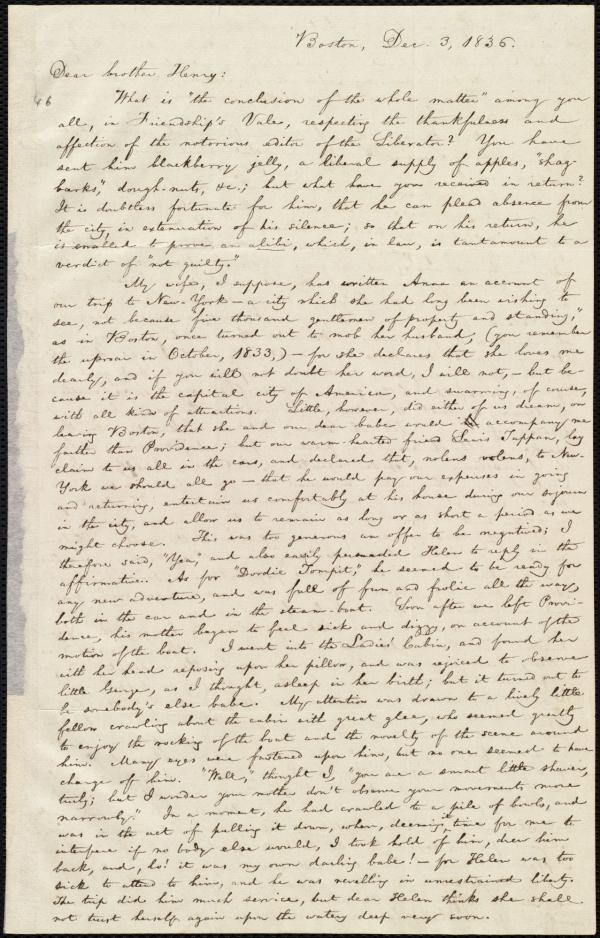 Boston, Dec. 3, 1836.
Dear brother Henry:
What is "the conclusion of the whole matter" among you
all, in Friendship's Vale, respecting the thankfulness and
affection of the notorious editor of the Liberator? You have
sent him blackberry jelly, a liberal supply of apples, "shag-
barks," dough-nuts, &c.; but what have you received in return?
It is doubtless fortunate for him, that he can plead absence from
the city, in extenuation of his silence; so that on his return, he
is enabled to prove an alibi, which, in law, is tantamount to a
verdict of "not guilty."
My wife, I suppose, has written Anna an account of
our trip to New-York — a city which she had long been wishing to
see, not because "five thousand gentlemen of property and standing,"
as in Boston, once turned out to mob her husband, (you remember
the uproar in October, 1833,) — for she declares that she loves me
dearly, and if you will not doubt her word, I will not, — but be-
cause it is the capital city of America, and swarming, of course,
with all kinds of attractions. Little, however, did either of us dream, on
leaving Boston, that she and our dear babe would accompany me
farther than Providence; but our warm-hearted friend Lewis Tappan, lay
claim to us all in the cars, and declared that, nolens volens, to New-
York we should all go — that he would pay our expenses in going
and returning, entertain us comfortably at his house during our sojourn
in the city, and allow us to remain as long or as short a period as we
might choose. This was too generous an offer to be negatived; I
therefore said, "Yea," and also easily persuaded Helen to reply in the
affirmative. As for "Dordie Tompit," he seemed to be ready for
any new adventure, and was full of fun and frolic all the way,
both in the car and in the steam-boat. Soon after we left Provi-
dence, his mother began to feel sick and dizzy, on account of the
motion of the boat. I went into the Ladies' Cabin, and found her
with her head reposing upon her pillow, and was rejoiced to observe
little George, as I thought, asleep in her birth; but it turned out to
be somebody's else babe. My attention was drawn to a lively little
fellow crawling about the cabin with great glee, who seemed greatly
to enjoy the rocking of the boat and the novelty of the scene around
him. Many eyes were fastened upon him, but no one seemed to have
charge of him. "Well," thought I, "you are a smart little shaver,
truly; but I wonder your mother don't observe your movements more
narrowly." In a moment, he had crawled to a pile of bowls, and
was in the act of pulling it down, when, deeming it time for me to
interfere if no body else would, I took hold of him, drew him
back, and, lo! it was my own darling babe! — for Helen was too
sick to attend to him, and he was revelling in unrestrained liberty.
The trip did him much service, but dear Helen thinks she shall
not trust herself again upon the watery deep very soon.